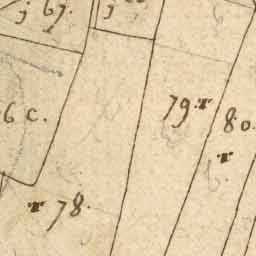 j 67.
j
79. r
6 c.
80.
r
r 78.